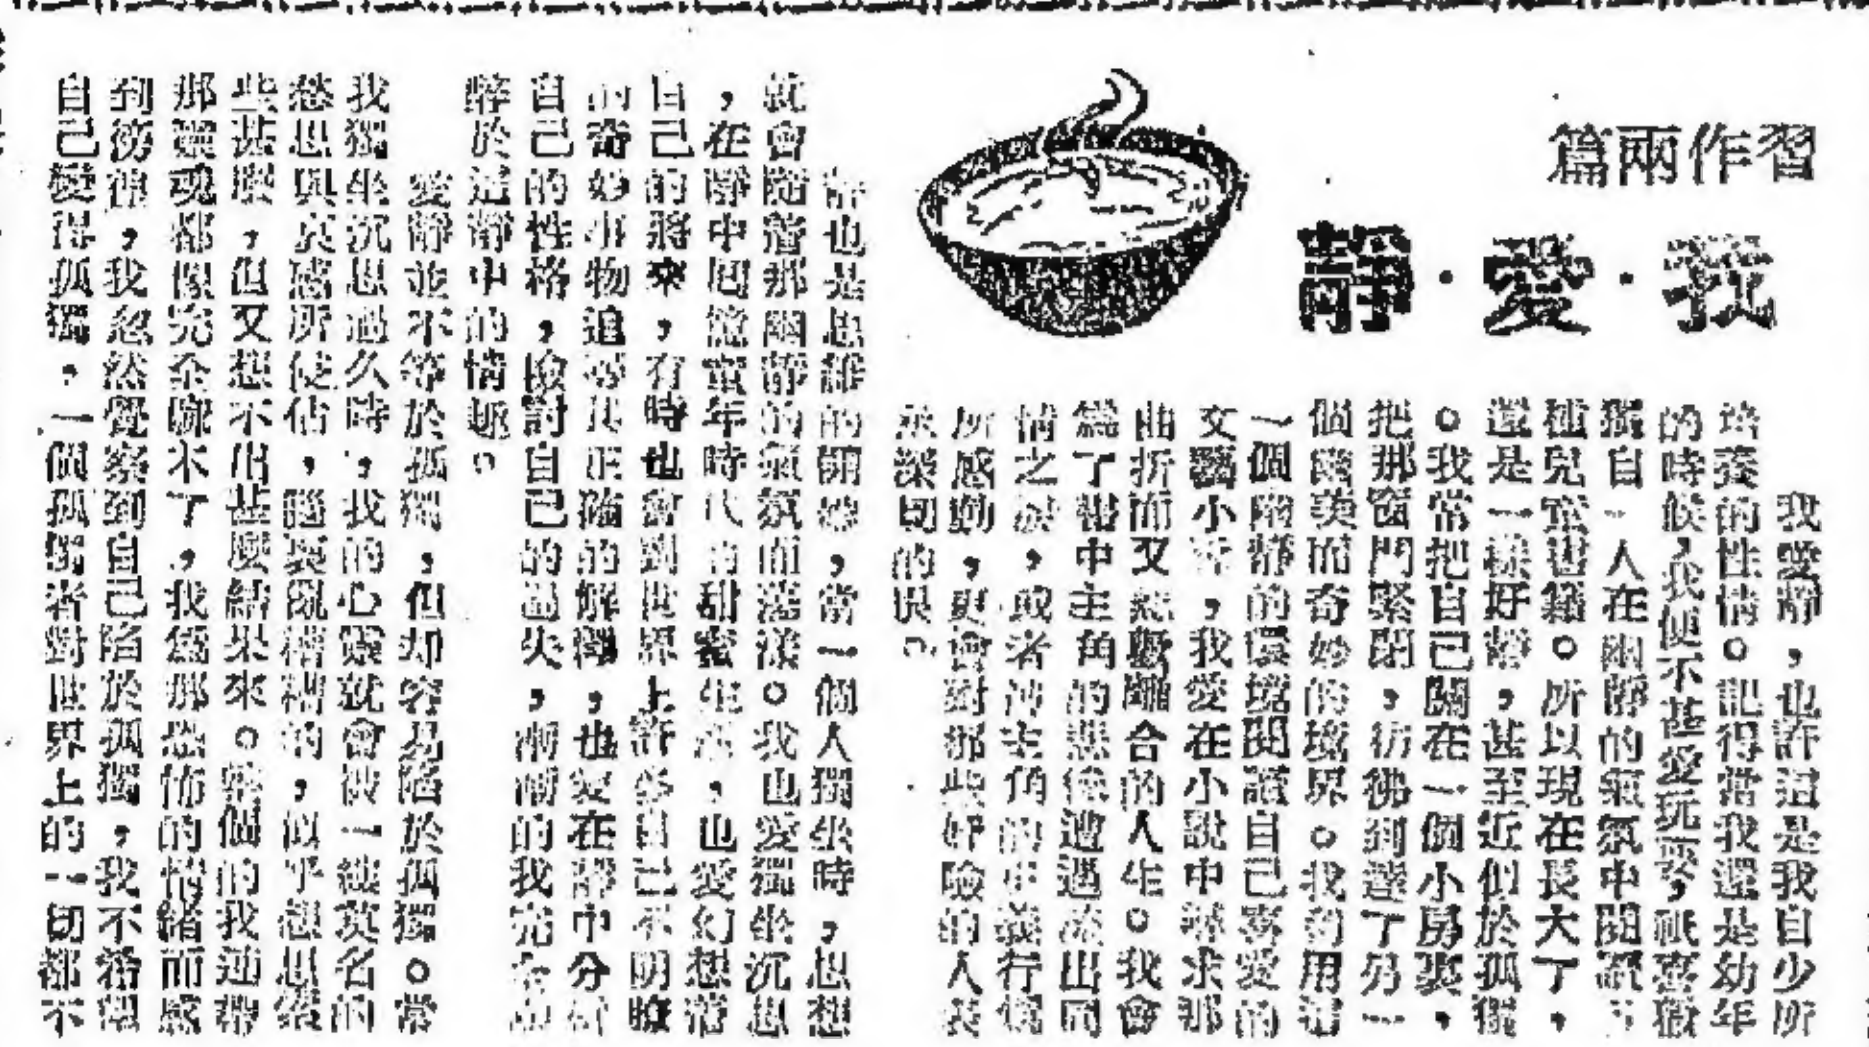 習作兩篇
我·愛·靜
我愛靜，也許這是我自少所
培養的性情。記得當我還是幼年
的時候，我便不甚愛玩耍，祇喜歡
獨自一人在幽靜的氣氛中閱讀
種兒童書籍。所以現在長大了，
還是一樣好靜，甚至近似於孤獨
。我常把自己關在一個小房裏，
把那窗門緊閉，彷彿到達了另一
個幽美而奇妙的境界。我利用着
一個幽靜的環境閱讀自己喜愛的
文藝小說，我愛在小說中尋求那
曲折而又悲歡離合的人生。我會
爲了書中主角的悲慘遭遇流出同
情之淚，或者被主角的中義行爲
所感動，更會對那些奸險的人表
深切的恨。
許也是思維的開始，當一個人獨坐時，思想
就會隨着那幽靜的氣氛而蕩漾。我也愛獨坐沉思
，在靜中回憶童年時代的甜蜜生活，也愛幻想着
自己的將來，有時也會對世界上許多自己不明瞭
的奇妙事物追尋其正確的解釋，也愛在靜中分析
自己的性格，檢討自己的過失，漸漸的我完全
醉於這靜中的情趣。
愛靜並不等於孤獨，但却容易陷於孤獨。當
我獨坐沉思過久時，我的心靈就會被一縷莫名的
愁思與哀感所使佔，腦裏亂糟糟的，似乎想思索
些甚麼，但又想不出甚麼結果來。整個的我連帶
那靈魂都像完全麻木了，我爲那恐怖的情緒而感
到徬徨，我忽然覺察到自己陷於孤獨，我不希望
自己變得孤獨，一個孤獨者對世界上的一切都不